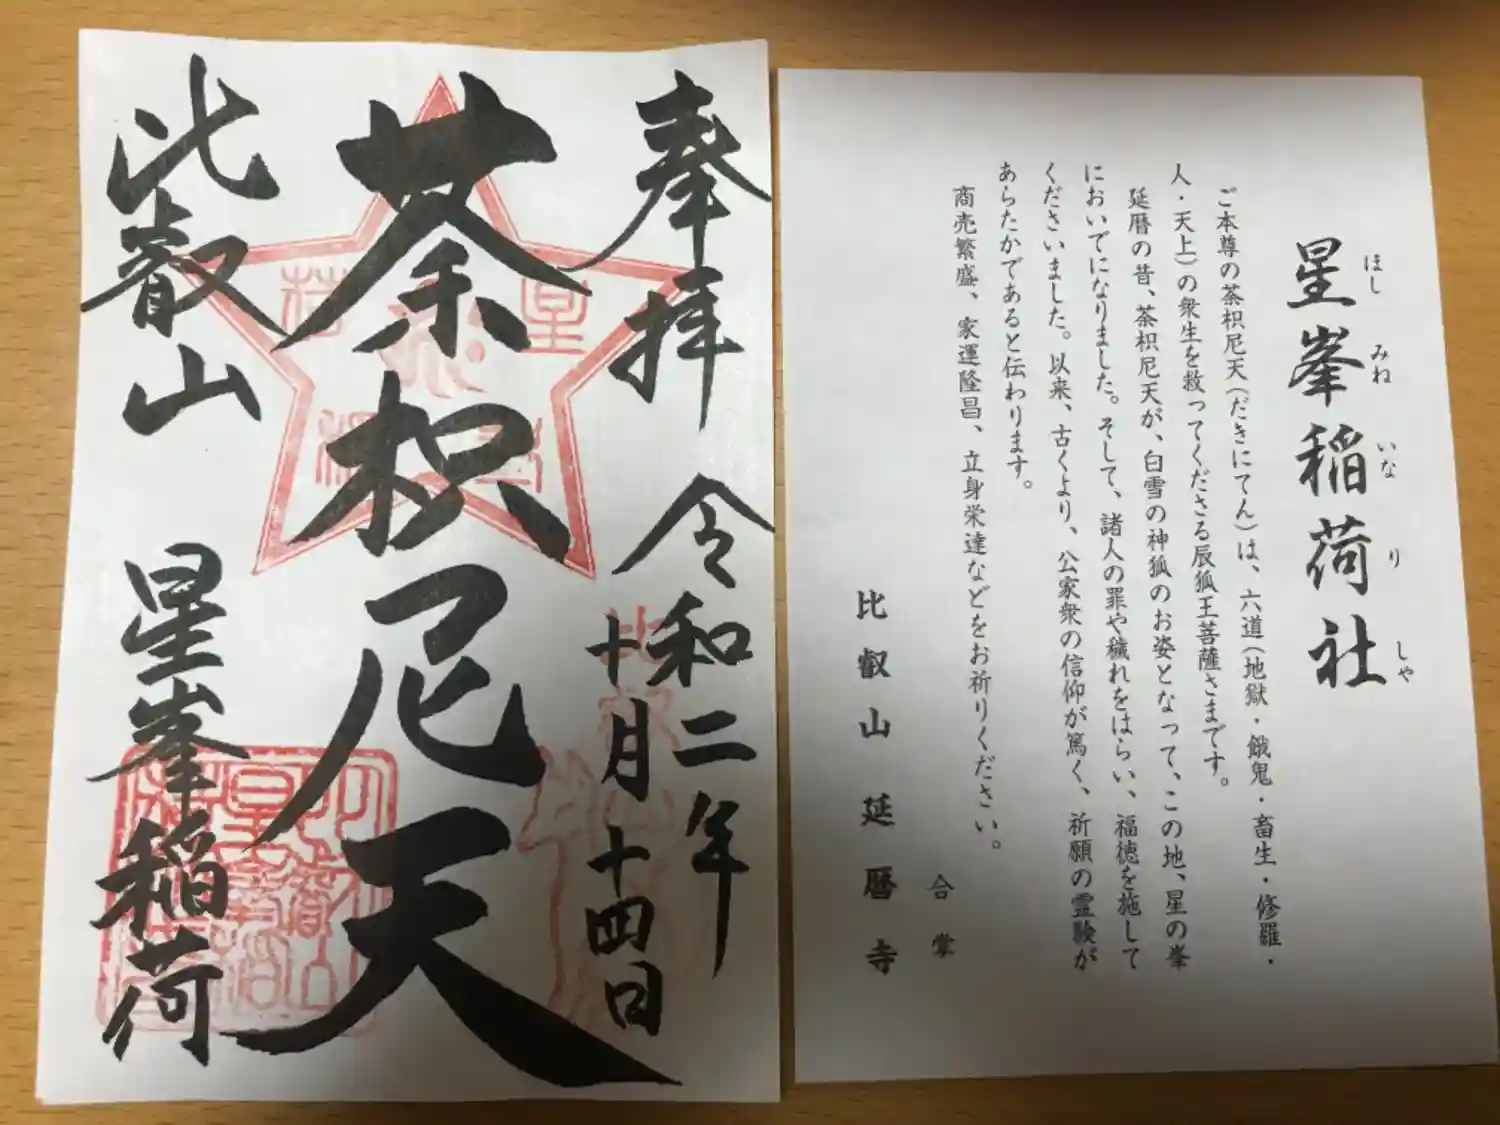 奉拝
令和二年
十月十四日
荼枳尼天
比叡山
星峯稲荷
星峯稲荷社
ほし みね いな り しゃ
ご本尊の荼枳尼天(だきにてん)は、六道(地獄・餓鬼・畜生・修羅・
人・天上)の衆生を救ってくださる辰狐王菩薩さまです。
延暦の昔、荼枳尼天が、白雪の神狐のお姿となって、この地、星の峯
においでになりました。そして、諸人の罪や穢れをはらい、福徳を施して
くださいました。以来、古くより、公家衆の信仰が篤く、祈願の霊験が
あらたかであると伝わります。
商売繁盛、家運隆昌、立身栄達などをお祈りください。
合掌
比叡山延暦寺